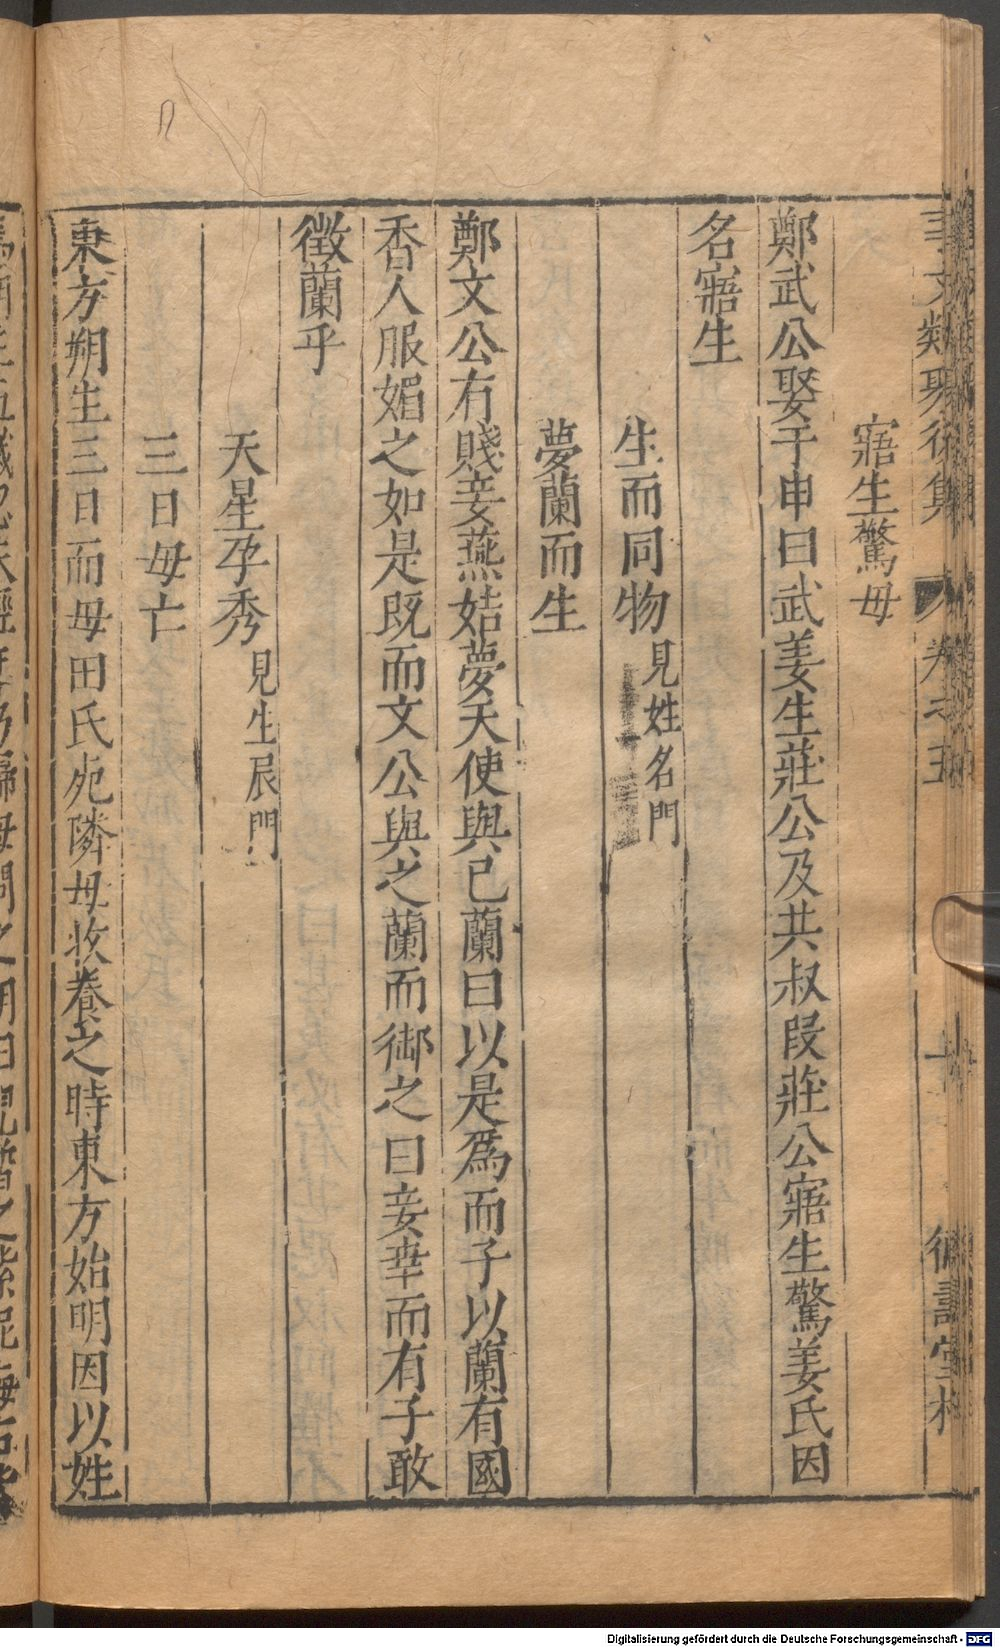 事文類聚後集 卷之五 十
寤生驚母
鄭武公娶于申曰武姜生莊公及共叔段莊公寤生驚姜氏因
名寤生
生而同物見姓名門
夢蘭而生
鄭文公有賤妾燕姞夢天使與己蘭曰以是爲而子以蘭有國
香人服媚之如是既而文公與之蘭而御之曰妾幸而有子敢
徴蘭乎
天星孕秀見生辰門
三日母亡
東方朔生三日而母田氏死隣母收養之時東方始明因以姓
Digitalisierung gefördert durch die Deutsche Forschungsgemeinschaft - DFG